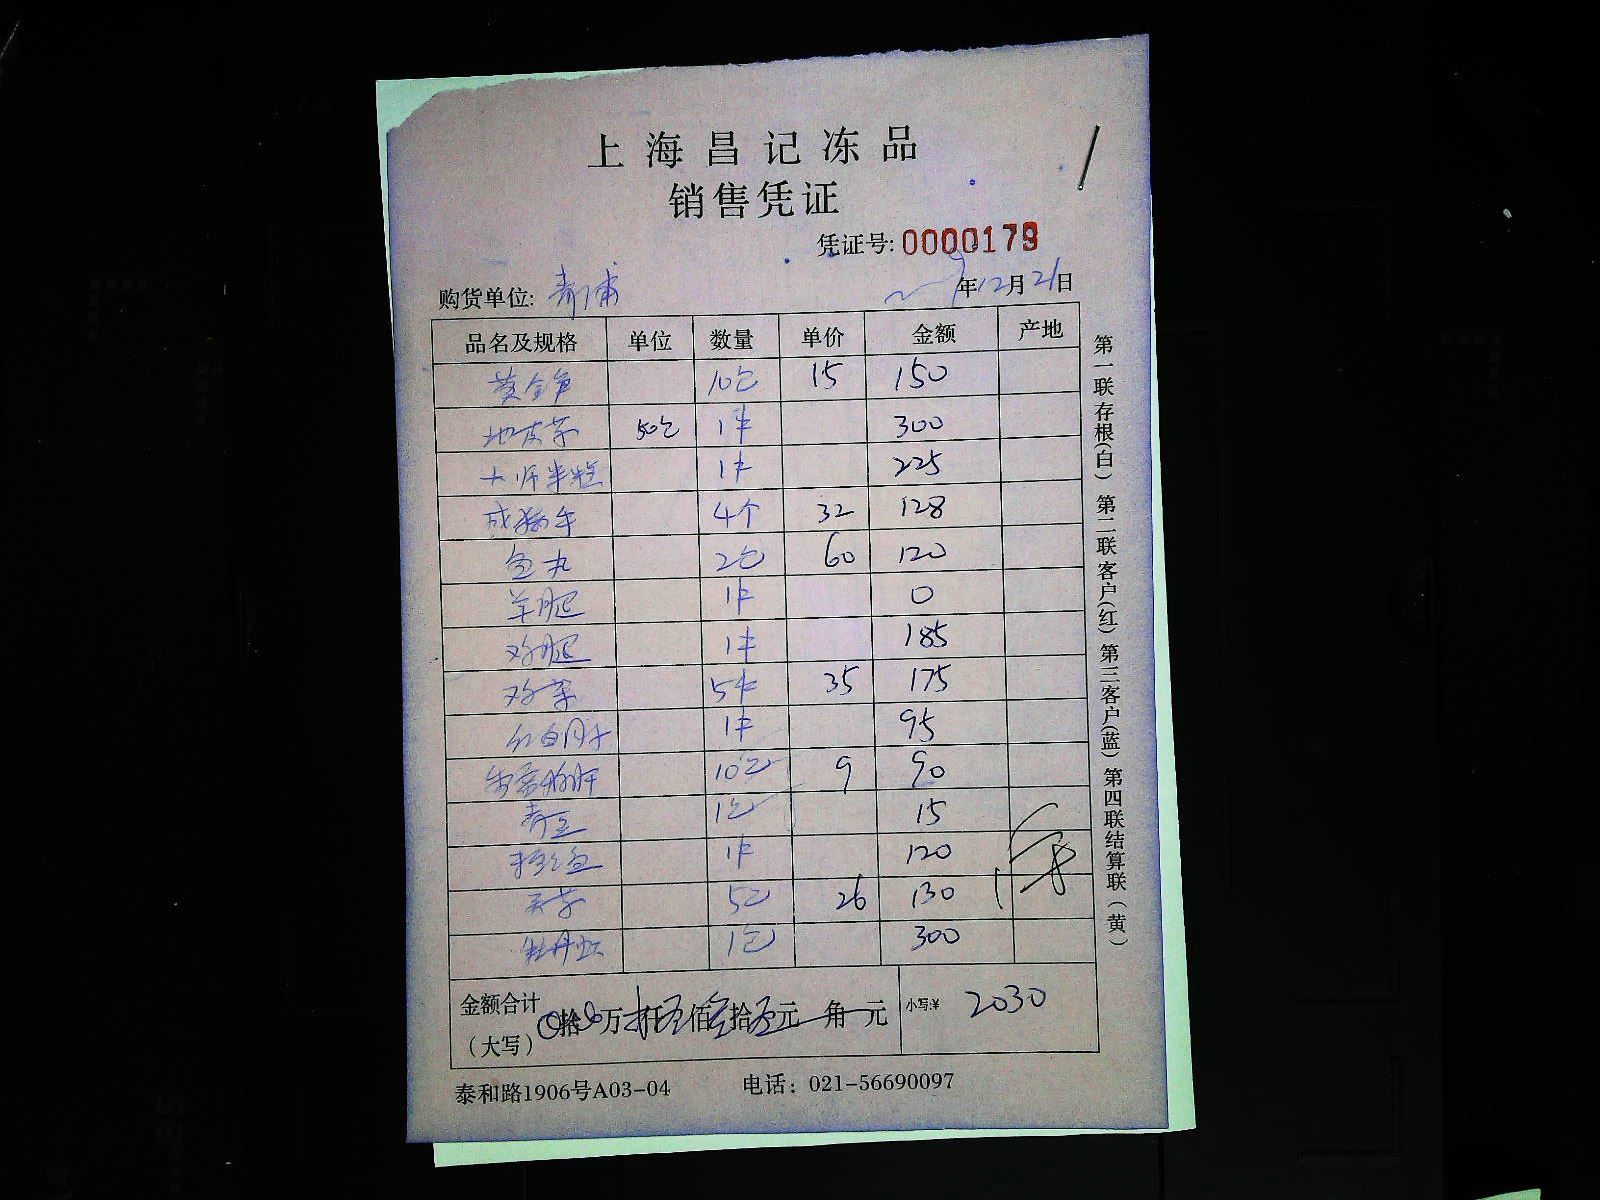 上海昌记冻品
销售凭证
凭证号:0000179
购货单位: 青浦 年12月21日
品名及规格 单位 数量 单价 金额 产地
黄金 10包 15 150
地皮菜 50包 1件 300
大师米糕 1件 225
4个 32 128
鱼丸 2包 60 120
羊腿 1件 0
鸡腿 1件 185
5件 35 175
1件 95
10包 9 90
青豆 1包 15
1件 120
5包 26 130
牡丹虾 1包 300
金额合计
(大写) 拾 万 仟 佰 拾 元 角 元 小写:¥ 2030
泰和路1906号A03-04 电话: 021-56690097
第一联存根(白) 第二联客户(红) 第三客户(蓝) 第四联结算联(黄)